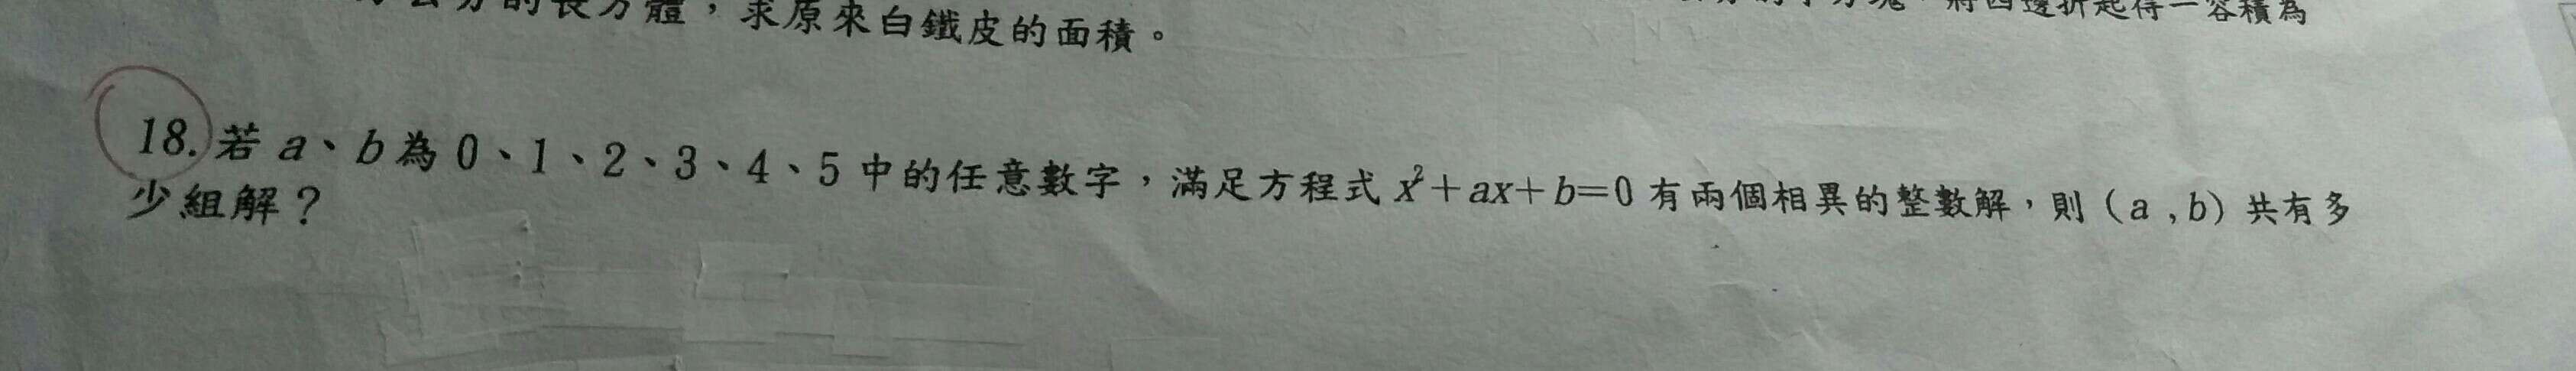 的長方體，求原來白鐵皮的面積。
將四邊折起得一容積為
18. 若 a、b 為 0、1、2、3、4、5 中的任意數字，滿足方程式 x²+ax+b=0 有兩個相異的整數解，則（a , b）共有多
少組解？